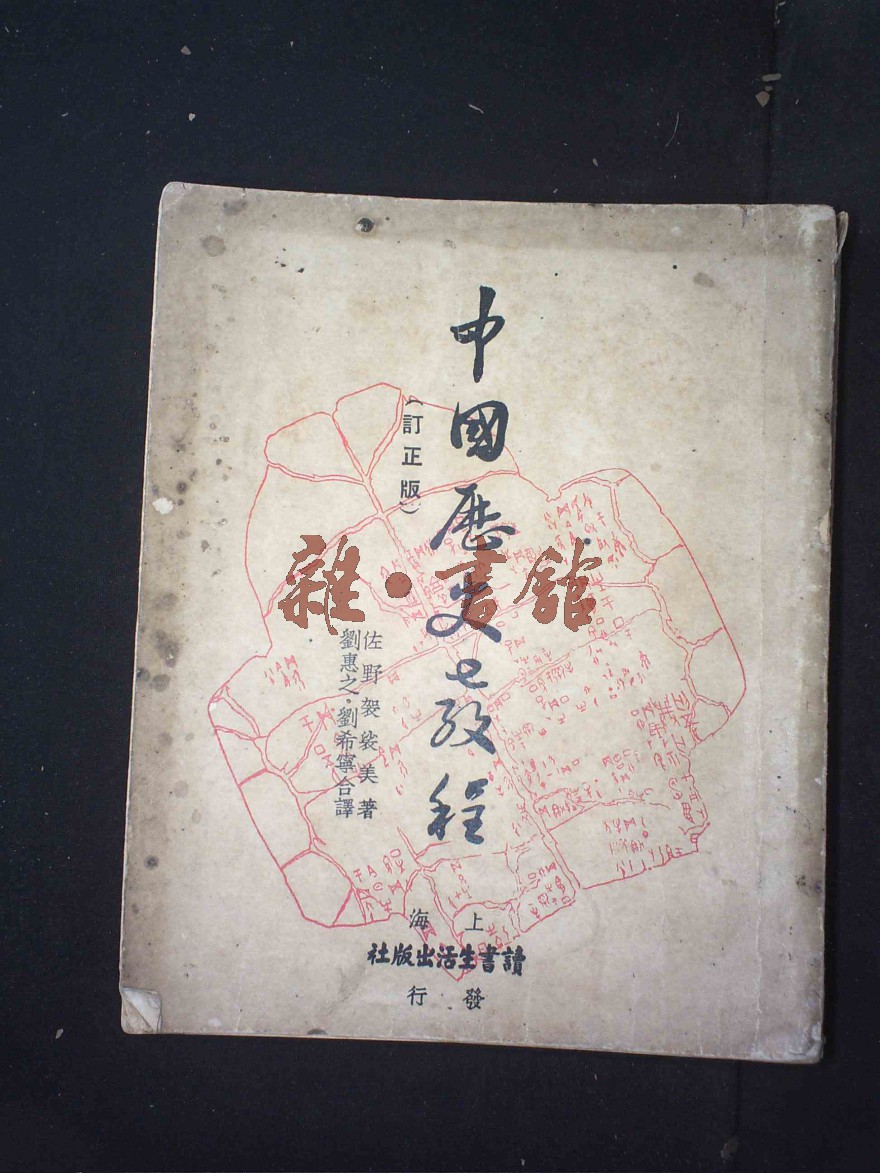 中國歷史教程
（訂正版）
佐野袈裟美著
劉惠之·劉希寧合譯
上海
讀書生活出版社
發行
雜·書館